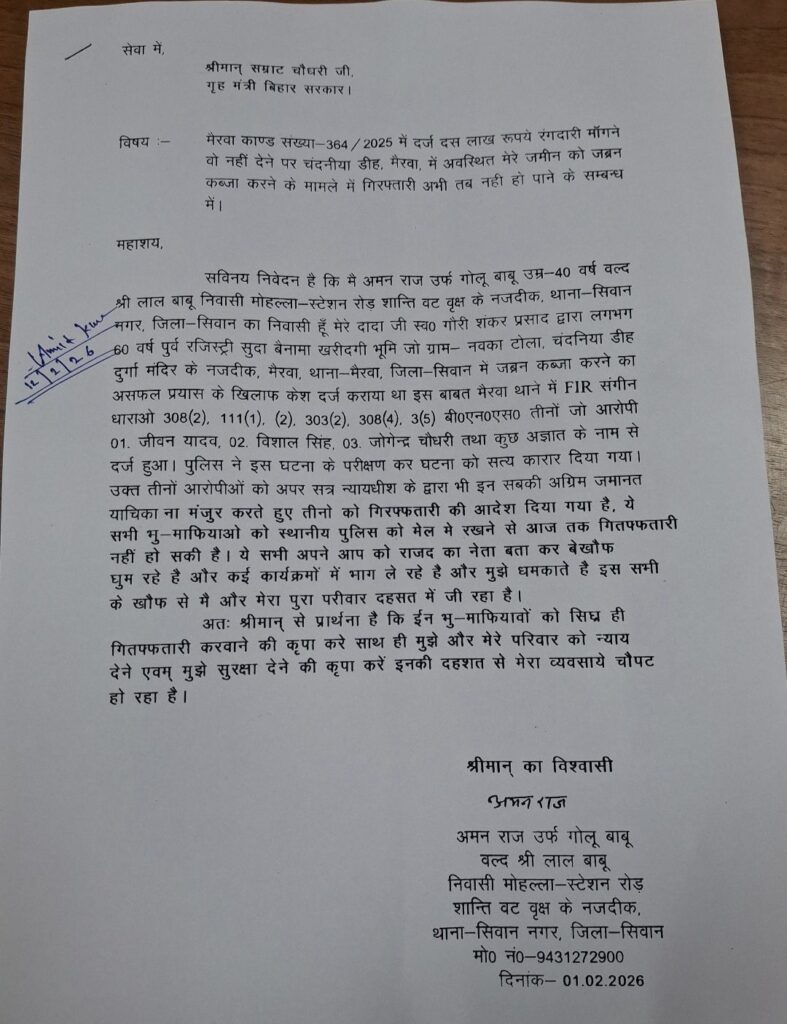 सेवा में,
श्रीमान् सम्राट चौधरी जी,
गृह मंत्री बिहार सरकार।
विषय :– मैरवा काण्ड संख्या–364/2025 में दर्ज दस लाख रूपये रंगदारी माँगने
वो नहीं देने पर चंदनीया डीह, मैरवा, में अवस्थित मेरे जमीन को जब्रन
कब्जा करने के मामले में गिरफ्तारी अभी तब नही हो पाने के सम्बन्ध
में।
महाशय,
सविनय निवेदन है कि मै अमन राज उर्फ गोलू बाबू उम्र–40 वर्ष वल्द
श्री लाल बाबू निवासी मोहल्ला–स्टेशन रोड़ शान्ति वट वृक्ष के नजदीक, थाना–सिवान
नगर, जिला–सिवान का निवासी हूँ मेरे दादा जी स्व0 गौरी शंकर प्रसाद द्वारा लगभग
60 वर्ष पुर्व रजिस्ट्री सुदा बैनामा खरीदगी भूमि जो ग्राम– नवका टोला, चंदनिया डीह
दुर्गा मंदिर के नजदीक, मैरवा, थाना–मैरवा, जिला–सिवान में जब्रन कब्जा करने का
असफल प्रयास के खिलाफ केश दर्ज कराया था इस बाबत मैरवा थाने में FIR संगीन
धाराओ 308(2), 111(1), (2), 303(2), 308(4), 3(5) बी0एन0एस0 तीनों जो आरोपी
01. जीवन यादव, 02. विशाल सिंह, 03. जोगेन्द्र चौधरी तथा कुछ अज्ञात के नाम से
दर्ज हुआ। पुलिस ने इस घटना के परीक्षण कर घटना को सत्य कारार दिया गया।
उक्त तीनों आरोपीओं को अपर सत्र न्यायधीश के द्वारा भी इन सबकी अग्रिम जमानत
याचिका ना मंजुर करते हुए तीनो को गिरफ्फतारी की आदेश दिया गया है, ये
सभी भु–माफियाओ को स्थानीय पुलिस को मेल मे रखने से आज तक गितफ्फतारी
नहीं हो सकी है। ये सभी अपने आप को राजद का नेता बता कर बेखौफ
घुम रहे है और कई कार्यक्रमों में भाग ले रहे है और मुझे धमकाते है इस सभी
के खौफ से मै और मेरा पुरा परीवार दहसत में जी रहा है।
अतः श्रीमान् से प्रार्थना है कि ईन भु–माफियावों को सिघ्र ही
गितफ्फतारी करवाने की कृपा करे साथ ही मुझे और मेरे परिवार को न्याय
देने एवम् मुझे सुरक्षा देने की कृपा करें इनकी दहशत से मेरा व्यवसाये चौपट
हो रहा है।
Amit Kumar
12/2/26
श्रीमान् का विश्वासी
अमन राज
अमन राज उर्फ गोलू बाबू
वल्द श्री लाल बाबू
निवासी मोहल्ला–स्टेशन रोड़
शान्ति वट वृक्ष के नजदीक,
थाना–सिवान नगर, जिला–सिवान
मो0 नं0–9431272900
दिनांक– 01.02.2026